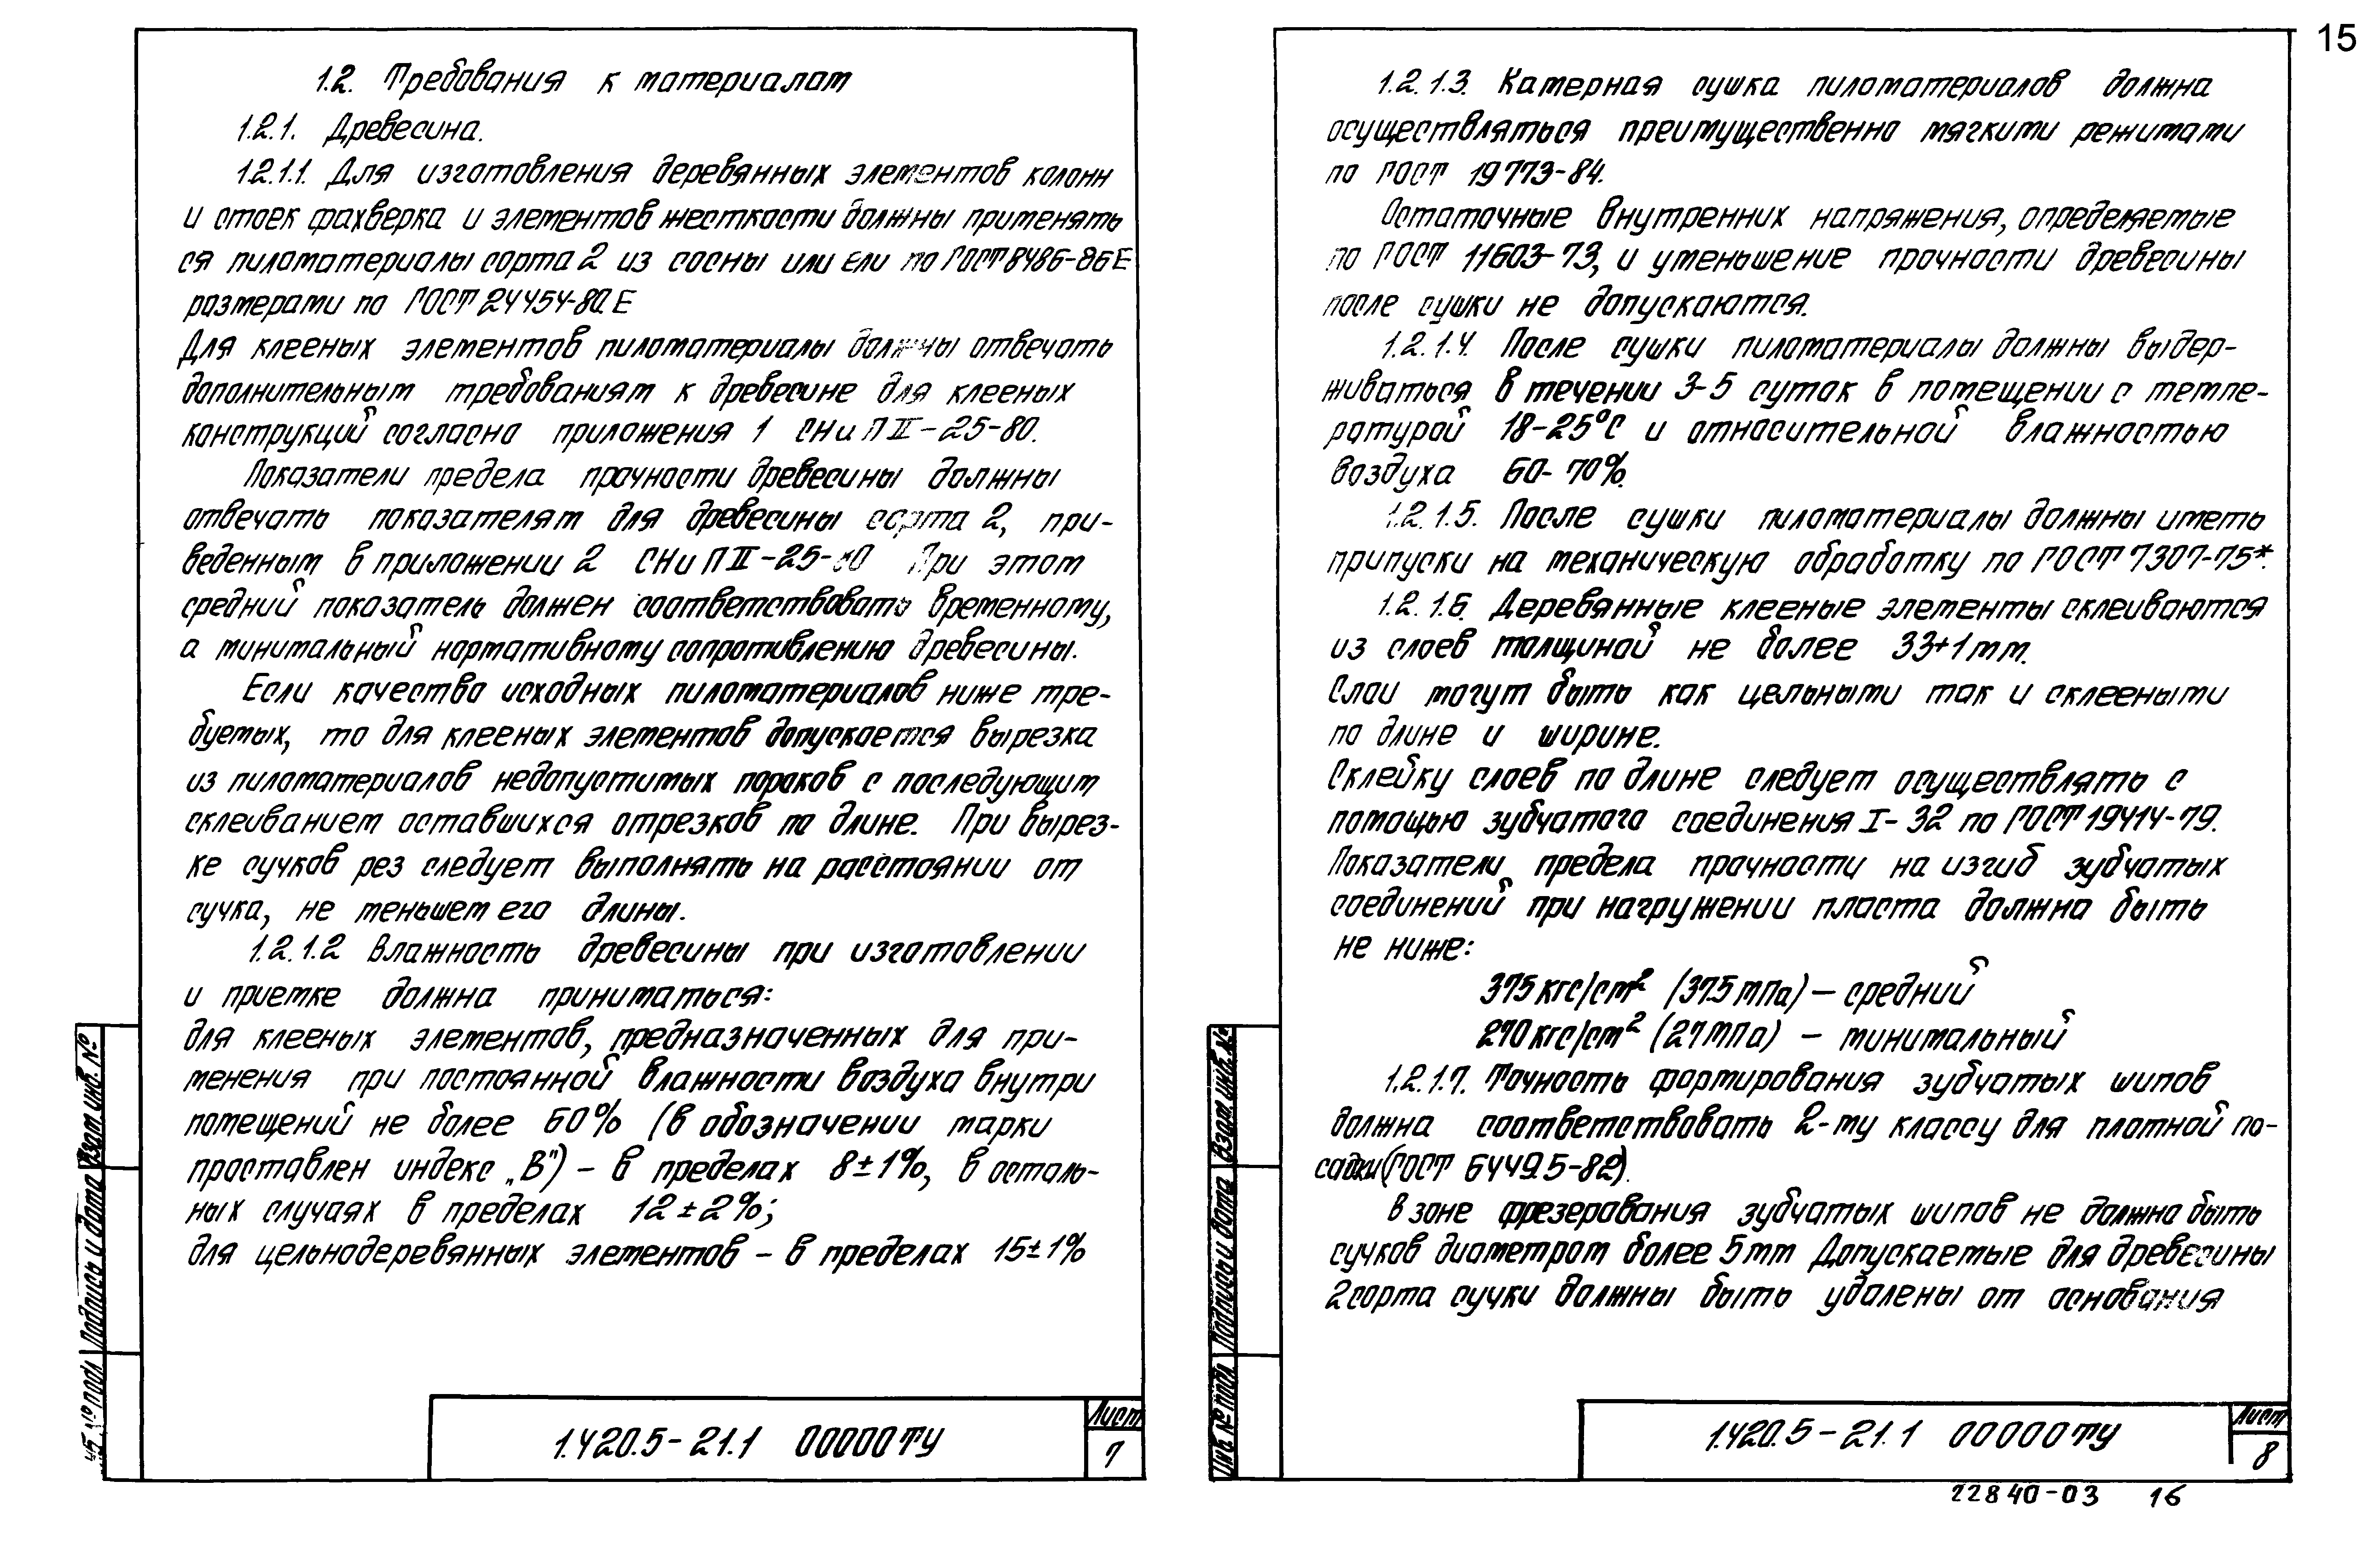 15
1.2. Требования к материалам
1.2.1. Древесина.
1.2.1.1. Для изготовления деревянных элементов колонн
и стоек фахверка и элементов жесткости должны применять
ся пиломатериалы сорта 2 из сосны или ели по ГОСТ 8486-86Е
размерами по ГОСТ 24454-80.Е
Для клееных элементов пиломатериалы должны отвечать
дополнительным требованиям к древесине для клееных
конструкций согласно приложения 1 СНиП II-25-80.
Показатели предела прочности древесины должны
отвечать показателям для древесины сорта 2, при-
веденным в приложении 2 СНиП II-25-80 При этом
средний показатель должен соответствовать временному,
а минимальный нормативному сопротивлению древесины.
Если качество исходных пиломатериалов ниже тре-
буемых, то для клееных элементов допускается вырезка
из пиломатериалов недопустимых пороков с последующим
склеиванием оставшихся отрезков по длине. При вырез-
ке сучков рез следует выполнять на расстоянии от
сучка, не меньшем его длины.
1.2.1.2 Влажность древесины при изготовлении
и приемке должна приниматься:
для клееных элементов, предназначенных для при-
менения при постоянной влажности воздуха внутри
помещений не более 60% (в обозначении марки
проставлен индекс „В") – в пределах 8±1%, в осталь-
ных случаях в пределах 12±2%;
для цельнодеревянных элементов – в пределах 15±1%
Взам инв. №
Подпись и дата
№ подл
1.420.5-21.1 00000ТУ
Лист
7
1.2.1.3. Камерная сушка пиломатериалов должна
осуществляться преимущественно мягкими режимами
по ГОСТ 19773-84.
Остаточные внутренних напряжения, определяемые
по ГОСТ 11603-73, и уменьшение прочности древесины
после сушки не допускаются.
1.2.1.4. После сушки пиломатериалы должны выдер-
живаться в течении 3-5 суток в помещении с темпе-
ратурой 18-25°С и относительной влажностью
воздуха 60-70%.
1.2.1.5. После сушки пиломатериалы должны иметь
припуски на механическую обработку по ГОСТ 7307-75*.
1.2.1.6. Деревянные клееные элементы склеиваются
из слоев толщиной не более 33+1мм.
Слои могут быть как цельными так и склееными
по длине и ширине.
Склейку слоев по длине следует осуществлять с
помощью зубчатого соединения I-32 по ГОСТ 19414-79.
Показатели предела прочности на изгиб зубчатых
соединений при нагружении пласта должна быть
не ниже:
375кгс/см² (37.5мПа) – средний
270кгс/см² (27мПа) – минимальный
1.2.1.7. Точность формирования зубчатых шипов
должна соответствовать 2-му классу для плотной по-
садки (ГОСТ 6449.5-82).
В зоне фрезерования зубчатых шипов не должно быть
сучков диаметром более 5мм Допускаемые для древесины
2 сорта сучки должны быть удалены от основания
Взам инв. №
Подпись и дата
Инв. № подл.
1.420.5-21.1 00000ТУ
Лист
8
22840-03 16